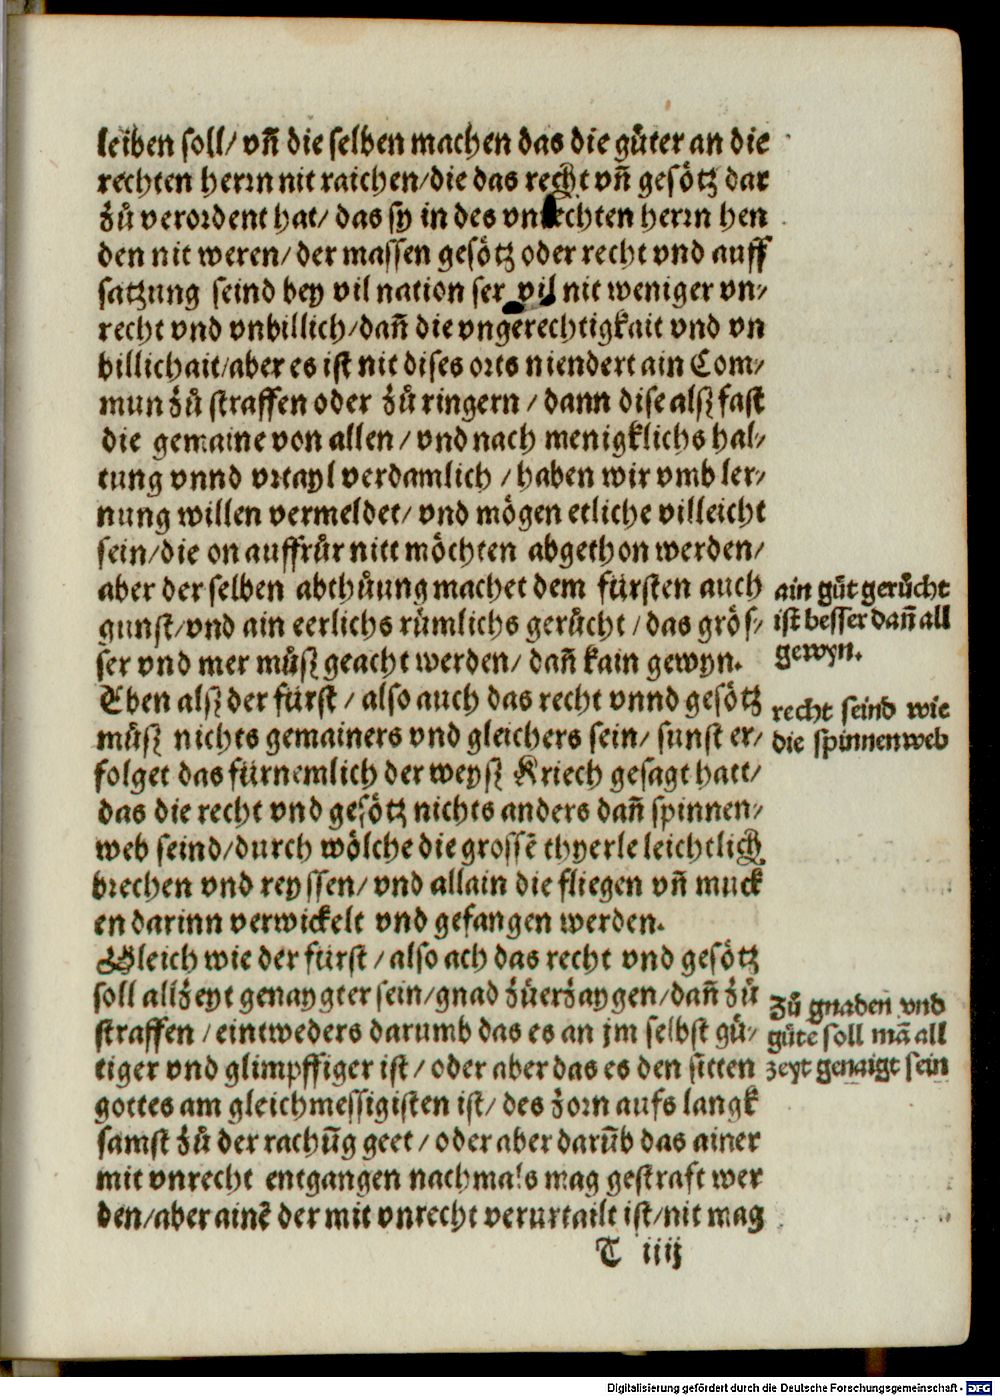 leiben soll/ vñ die selben machen das die guͤter an die
rechten herrn nit raichen/die das recht vñ gesötz dar
zuͦ verordent hat/ das sy in des vnrechten herrn hen
den nit weren/ der massen gesötz oder recht vnd auff
satzung seind bey vil nation ser vil nit weniger vn⸗
recht vnd vnbillich/dañ die vngerechtigkait vnd vn
billichait/aber es ist nit dises orts niendert ain Com⸗
mun zuͦ straffen oder zuͦ ringern / dann dise alsz fast
die gemaine von allen / vnd nach menigklichs hal⸗
tung vnnd vrtayl verdamlich / haben wir vmb ler⸗
nung willen vermeldet/ vnd mögen etliche villeicht
sein/die on auffruͦr nitt möchten abgethon werden/
aber der selben abthuͦung machet dem fürsten auch
gunst/vnd ain eerlichs rümlichs geruͤcht / das grös⸗
ser vnd mer muͦsz geacht werden/ dañ kain gewyn.
Eben alsz der fürst / also auch das recht vnnd gesötz
muͦsz nichts gemainers vnd gleichers sein/ sunst er⸗
folget das fürnemlich der weysz Kriech gesagt hatt/
das die recht vnd gesötz nichts anders dañ spinnen⸗
web seind/durch wölche die grossē thyerle leichtlich
brechen vnd reyssen/ vnd allain die fliegen vñ muck
en darinn verwickelt vnd gefangen werden.
Gleich wie der fürst / also ach das recht vnd gesötz
soll allzeyt genaygter sein/gnad zuͦerzaygen/dañ zuͦ
straffen / eintweders darumb das es an jm selbst guͤ⸗
tiger vnd glimpffiger ist / oder aber das es den sitten
gottes am gleichmessigisten ist/ des zorn aufs langk
samst zuͦ der rachūg geet / oder aber darūb das ainer
mit vnrecht entgangen nachmals mag gestraft wer
den/aber ainē der mit vnrecht verurtailt ist/nit mag
T iiij
ain guͦt geruͤcht
ist besser dañ all
gewyn.
recht seind wie
die spinnenweb
Zuͦ gnaden vnd
guͤte soll mā all
zeyt genaigt sein
Digitalisierung gefördert durch die Deutsche Forschungsgemeinschaft - DFG